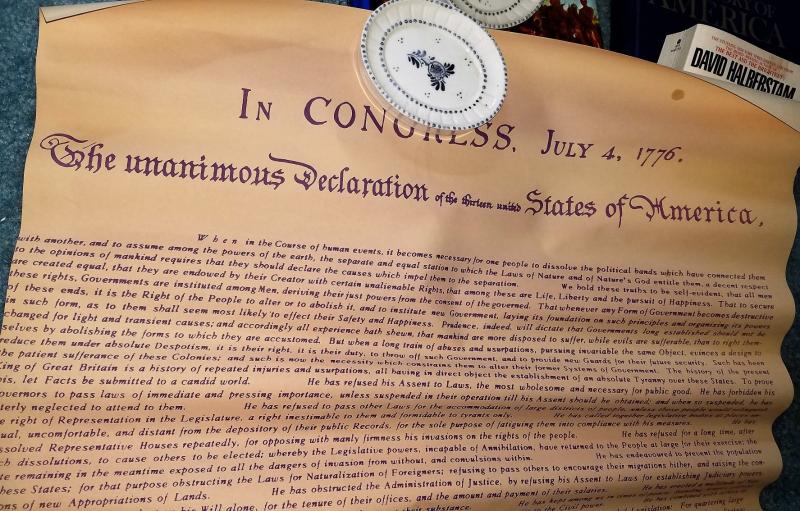 STORY OF
AMERICA
THE BEST AND THE BRIGHTEST
DAVID HALBERSTAM
IN CONGRESS, JULY 4, 1776.
The unanimous Declaration of the thirteen united States of America,
When in the Course of human events, it becomes necessary for one people to dissolve the political bands which have connected them
with another, and to assume among the powers of the earth, the separate and equal station to which the Laws of Nature and of Nature's God entitle them, a decent respect
to the opinions of mankind requires that they should declare the causes which impel them to the separation. We hold these truths to be self-evident, that all men
are created equal, that they are endowed by their Creator with certain unalienable Rights, that among these are Life, Liberty and the pursuit of Happiness. That to secure
these rights, Governments are instituted among Men, deriving their just powers from the consent of the governed. That whenever any Form of Government becomes destructive
of these ends, it is the Right of the People to alter or to abolish it, and to institute new Government, laying its foundation on such principles and organizing its powers
in such form, as to them shall seem most likely to effect their Safety and Happiness. Prudence, indeed, will dictate that Governments long established should not be
changed for light and transient causes; and accordingly all experience hath shewn, that mankind are more disposed to suffer, while evils are sufferable, than to right them-
selves by abolishing the forms to which they are accustomed. But when a long train of abuses and usurpations, pursuing invariable the same Object, evinces a design to
reduce them under absolute Despotism, it is their right, it is their duty, to throw off such Government, and to provide new Guards for their future security. Such has been
the patient sufferance of these Colonies; and such is now the necessity which constrains them to alter their former Systems of Government. The history of the present
King of Great Britain is a history of repeated injuries and usurpations, all having in direct object the establishment of an absolute Tyranny over these States. To prove
this, let Facts be submitted to a candid world. He has refused his Assent to Laws, the most wholesome and necessary for public good. He has forbidden his
overnors to pass laws of immediate and pressing importance, unless suspended in their operation till his Assent should be obtained; and when so suspended, he has
terly neglected to attend to them. He has refused to pass other Laws for the accommodation of large districts of people, unless those people would
e right of Representation in the Legislature, a right inestimable to them and formidable to tyrants only. He has called together legislative bodies at places
ual, uncomfortable, and distant from the depository of their public Records, for the sole purpose of fatiguing them into compliance with his measures. He has
ssolved Representative Houses repeatedly, for opposing with manly firmness his invasions on the rights of the people. He has refused for a long time, after
ch dissolutions, to cause others to be elected; whereby the Legislative powers, incapable of Annihilation, have returned to the People at large for their exercise; the
te remaining in the meantime exposed to all the dangers of invasion from without, and convulsions within. He has endeavoured to prevent the population
hese States; for that purpose obstructing the Laws for Naturalization of Foreigners; refusing to pass others to encourage their migrations hither, and raising the con-
ons of new Appropriations of Lands. He has obstructed the Administration of Justice, by refusing his Assent to Laws for establishing Judiciary powers.
his Will alone, for the tenure of their offices, and the amount and payment of their salaries.
their substance. He has kept among us in times
the Civil power. Legislation: For quartering large